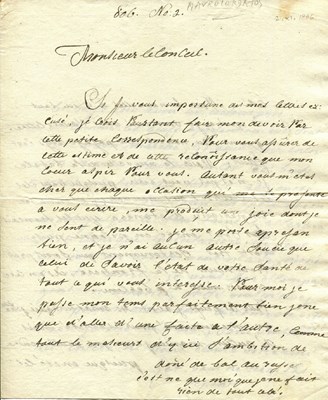 806. No. 2.
Monsieur le Consul.
Si je vous importune des mes lettres ex
cusé, je crois Partant fair mon devoir Par
cette petite Correspondence, Pour vous assurer de
cette estime et de cette reconoissance que mon
Coeur a pour Vous. Autant vous m'etes
cher que chaque occasion qui se presente
a vous ecrire, me produit une joie dont je
ne sent de pareille. je me porte apresan
bien, et je n'ai aucun autre
celui de savoir l'état de votre santé de
tout ce qui vous interesse. Pour moi je
passe mon tems parfaitement bien
que d'aller d'une faete a l'autre, Comme
tout le l'ambition de
doné de bal au
c'est ne que moi que jene fait
rien de tout cela.